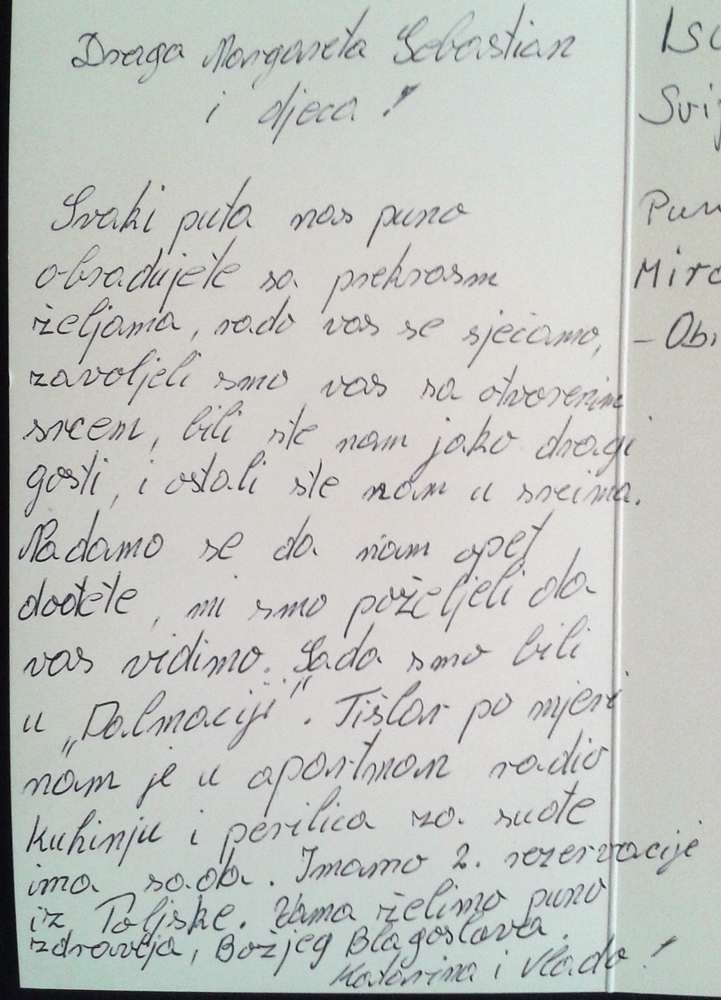 Draga Margareta Sebastian
i djeca !
Svaki puta nas puno
obradujete sa prekrasm
željama, rado vas se sjećamo,
zavoljeli smo vas sa otvorenim
srcem, bili ste nam jako dragi
gosti, i ostali ste nam u srcima.
Nadamo se da nam opet
dođete, mi smo poželjeli da
vas vidimo. Sada smo bili
u „Dalmaciji". Tišlar po mjeri
nam je u apartman radio
kuhinju i perilica za suđe
ima sada. Imamo 2. rezervacije
iz Poljske. Vama želimo puno
zdravlja, Božjeg Blagoslova
Katarina i Vlado !
Svij
Pun
Miro
- Obi